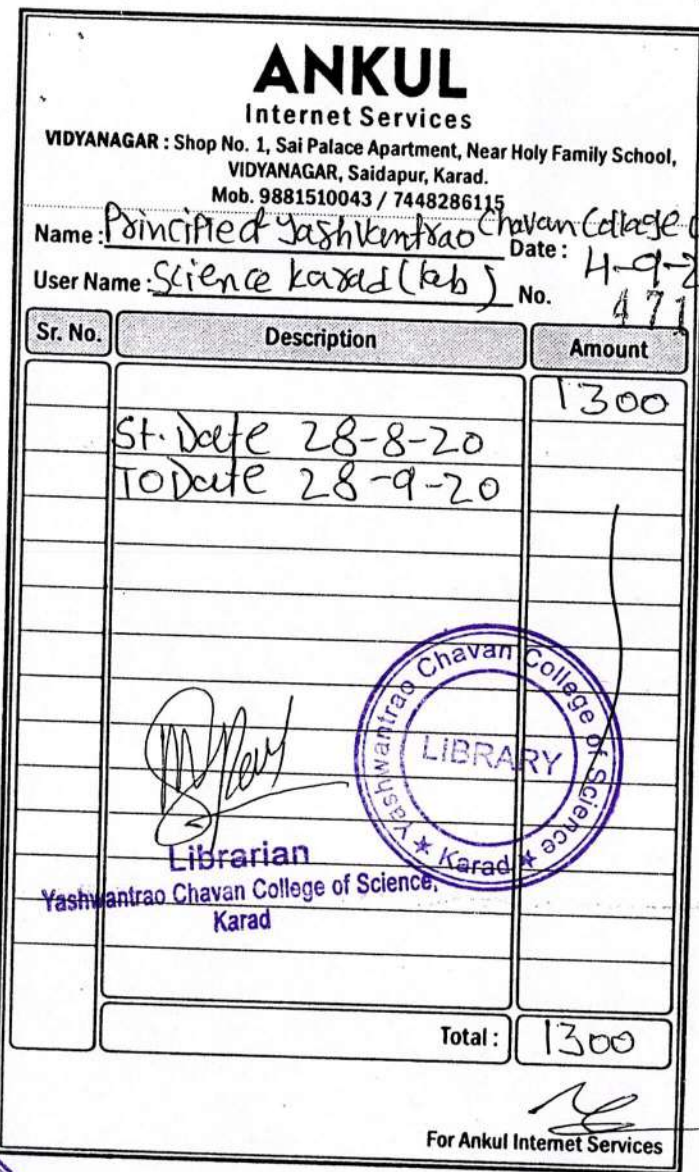 ANKUL
Internet Services
VIDYANAGAR : Shop No. 1, Sai Palace Apartment, Near Holy Family School,
VIDYANAGAR, Saidapur, Karad.
Mob. 9881510043 / 7448286115
Name : Yashvantrao Chavan College
Date : 4-9-2
User Name : Science Karad (lab)
No. 471
Sr. No. Description Amount
1300
St. Date 28-8-20
TO Date 28-9-20
Yashwantrao Chavan College of Science
LIBRARY
Karad
Librarian
Yashwantrao Chavan College of Science,
Karad
Total : 1300
For Ankul Internet Services